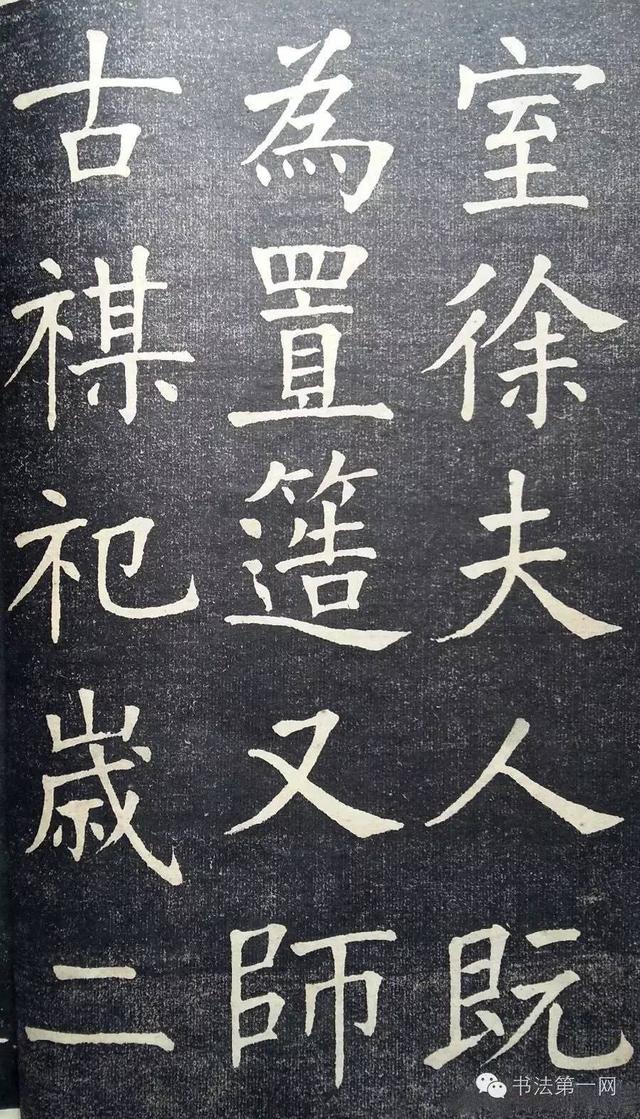 室徐夫人既
為置簉又師
古禖祀歲二
书法第一网